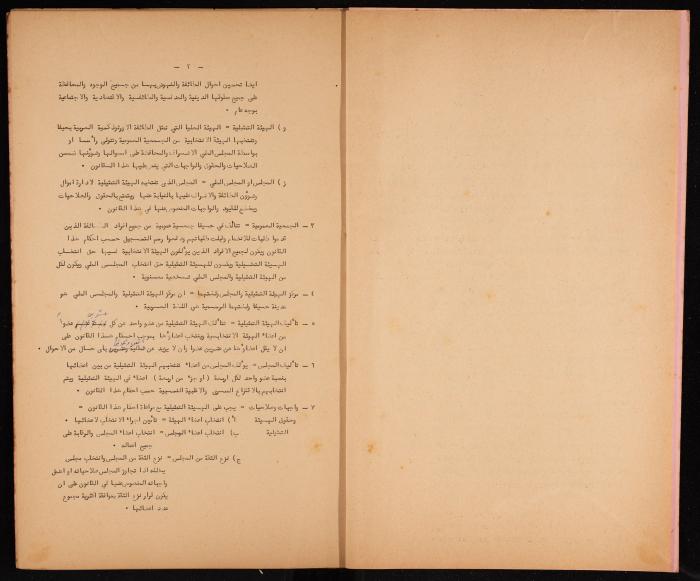 — ٢ —
ايضا تحسين احوال الطائفة والنهوض بها من جميع الوجوه والمحافظة
على جميع حقوقها الدينية والمدنية والطائفية والاقتصادية والاجتماعية
بوجه عام •
و) الهيئة التمثيلية = الهيئة العليا التي تمثل الطائفة الارثوذكسية العربية بحيفا
وتنتخبها الهيئة الانتخابية من الجمعية العمومية وتتولى رأسا او
بواسطة المجلس الملي الاشراف والمحافظة على اموالها وشؤونها ضمن
الصلاحيات والحقوق والواجبات التي ينص عليها هذا القانون •
ز) المجلس او المجلس الملي = المجلس الذي تنتخبه الهيئة التمثيلية لادارة اموال
وشؤون الطائفة والاشراف عليها بالنيابة عنها ويتمتع بالحقوق والصلاحيات
ويخضع للقيود والواجبات المنصوص عنها في هذا القانون •
٣ — الجمعية العمومية = تتألف في حيفا جمعية عمومية من جميع افراد الطائفة الذين
قدموا طلبات للانضمام وقبلت طلباتهم ودفعوا رسم التسجيل حسب احكام هذا
القانون ويكون لجميع الافراد الذين يؤلفون الهيئة الانتخابية فيها حق انتخاب
الهيئة التمثيلية ويكون للهيئة التمثيلية حق انتخاب المجلس الملي ويكون لكل
من الهيئة التمثيلية والمجلس الملي شخصية معنوية •
٤ — مركز الهيئة التمثيلية والمجلس ولغتهما = ان مركز الهيئة التمثيلية والمجلس الملي هو
مدينة حيفا ولغتهما الرسمية هي اللغة العربية •
٥ — تأليف الهيئة التمثيلية = تتألف الهيئة التمثيلية من عضو واحد عن كل عضوا
من اعضاء الهيئة الانتخابية وينتخب اعضاؤها بموجب احكام هذا القانون على
ان لا يقل اعضاؤها عن عشرين عضوا وان لا يزيد عن بأي حال من الاحوال •
٦ — تأليف المجلس = يؤلف المجلس من اعضاء تنتخبهم الهيئة التمثيلية من بين اعضائها
بنسبة عضو واحد لكل اربعة (او جزء من اربعة) اعضاء في الهيئة التمثيلية ويتم
انتخابهم بالاقتراع السري والاغلبية النسبية حسب احكام هذا القانون •
٧ — واجبات وصلاحيات = يجب على الهيئة التمثيلية مع مراعاة احكام هذا القانون =
وحقوق الهيئة أ) انتخاب اعضاء الهيئة = تأمين اجراء الانتخاب لاعضائها •
التمثيلية ب) انتخاب اعضاء المجلس = انتخاب اعضاء المجلس والرقابة على
جميع اعماله •
ج) نزع الثقة من المجلس = نزع الثقة من المجلس وانتخاب مجلس
بدله اذا تجاوز المجلس صلاحياته او اخل
واجباته المنصوص عنها في القانون على ان
يكون قرار نزع الثقة بموافقة اكثرية مجموع
عدد اعضائها •